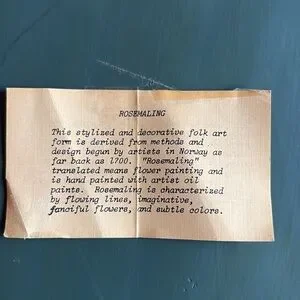 ROSEMALING
This stylized and decorative folk art
form is derived from methods and
design begun by artists in Norway as
far back as 1700. "Rosemaling"
translated means flower painting and
is hand painted with artist oil
paints. Rosemaling is characterized
by flowing lines, imaginative,
fanciful flowers, and subtle colors.